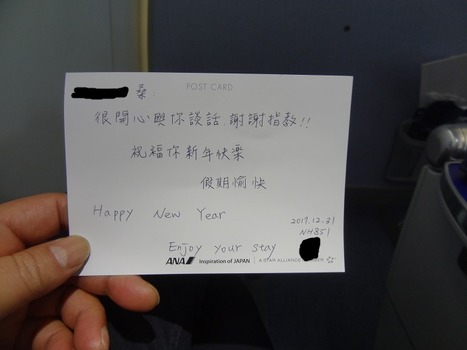 POST CARD
桑:
很開心與你談話,謝謝指教!!
祝福你新年快樂
假期愉快
Happy New Year
2017.12.31
NH851
Enjoy your stay
ANA Inspiration of JAPAN | A STAR ALLIANCE MEMBER